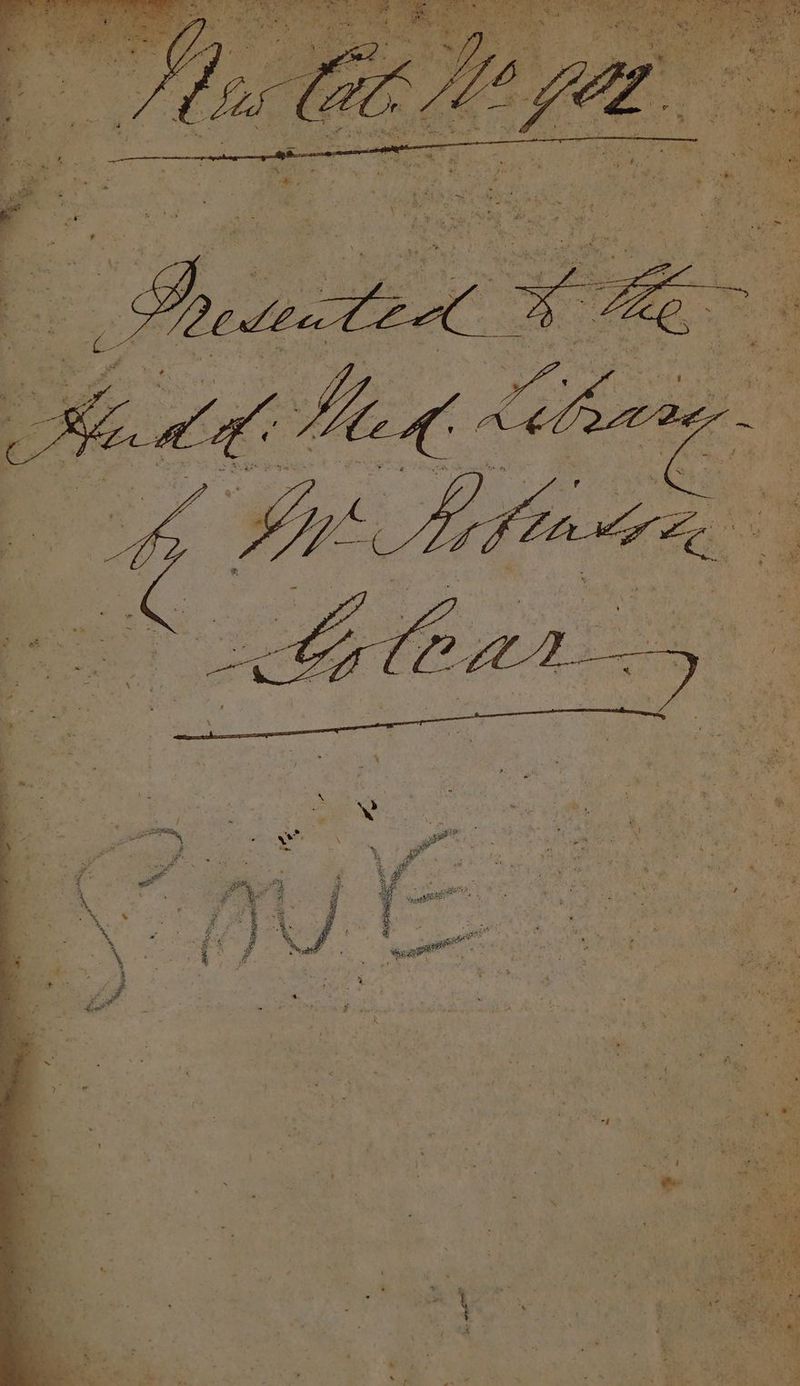 New Cat. No 902.
Presented to the
Hudd: Med. Library -
by Mr Robinson
Golcar
SAVE